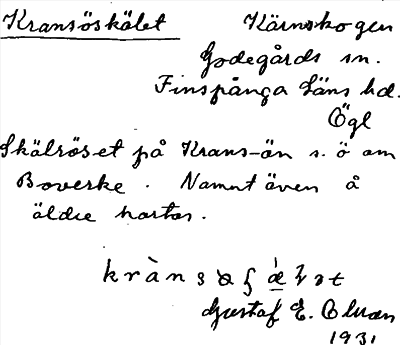 Kransöskälet Kärnskogen
Godegårds sn.
Finspånga Läns hd.
Ögl
Skälröset på Krans-ön s. ö om
Boverke. Namnt även å
äldre kartor.
Gustaf E. Olman
1931